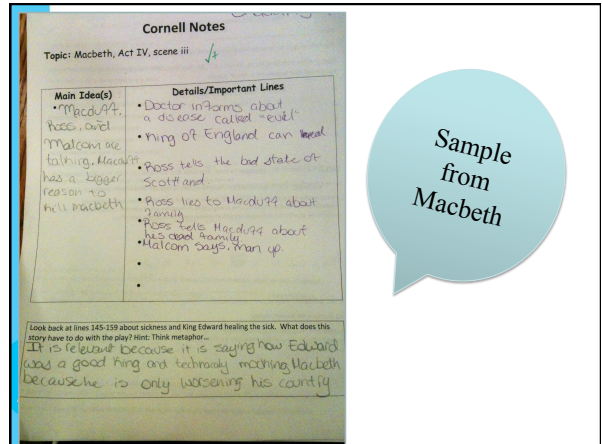 Cornell Notes
Topic: Macbeth, Act IV, scene iii
√+
Main Idea(s)
• Macduff,
Ross, and
Malcom are
talking, Macduff
has a bigger
reason to
kill macbeth
Details/Important Lines
• Doctor informs about
a disease called "evil"
• King of England can heal
• Ross tells the bad state of
Scotland.
• Ross lies to Macduff about
family
• Ross tells Macduff about
his dead family
• Malcom says, man up.
•
•
Look back at lines 145-159 about sickness and King Edward healing the sick. What does this
story have to do with the play? Hint: Think metaphor...
It is relevant because it is saying how Edward
was a good king and technically mocking Macbeth
because he is only worsening his country
Sample
from
Macbeth